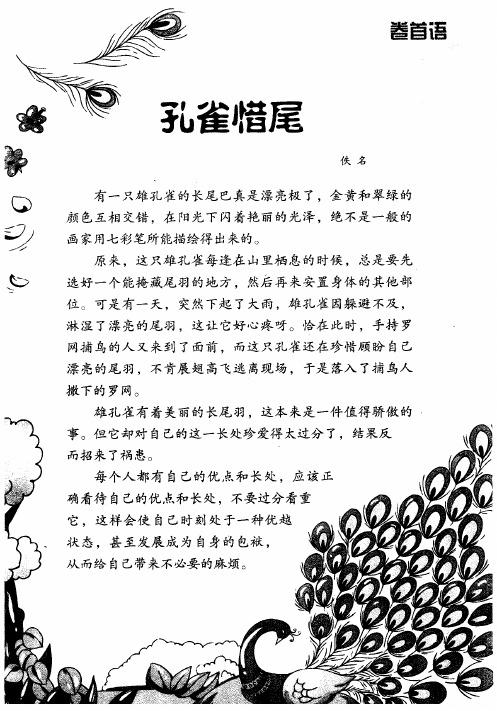 卷首语
孔雀惜尾
佚 名
有一只雄孔雀的长尾巴真是漂亮极了，金黄和翠绿的
颜色互相交错，在阳光下闪着艳丽的光泽，绝不是一般的
画家用七彩笔所能描绘得出来的。
原来，这只雄孔雀每逢在山里栖息的时候，总是要先
选好一个能掩藏尾羽的地方，然后再来安置身体的其他部
位。可是有一天，突然下起了大雨，雄孔雀因躲避不及，
淋湿了漂亮的尾羽，这让它好心疼呀。恰在此时，手持罗
网捕鸟的人又来到了面前，而这只孔雀还在珍惜顾盼自己
漂亮的尾羽，不肯展翅高飞逃离现场，于是落入了捕鸟人
撒下的罗网。
雄孔雀有着美丽的长尾羽，这本来是一件值得骄傲的
事。但它却对自己的这一长处珍爱得太过分了，结果反
而招来了祸患。
每个人都有自己的优点和长处，应该正
确看待自己的优点和长处，不要过分看重
它，这样会使自己时刻处于一种优越
状态，甚至发展成为自身的包袱，
从而给自己带来不必要的麻烦。